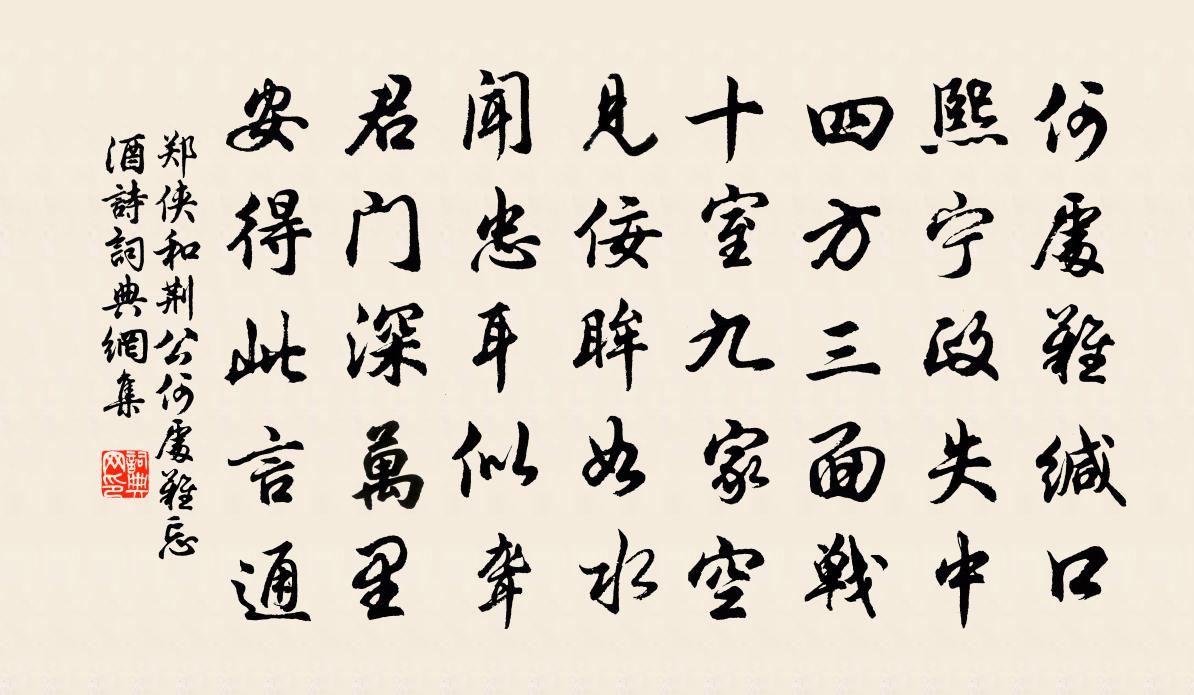 何處難緘口
熙宁政失中
四方三面戦
十室九家空
見佞眸如水
闻忠耳似聋
君门深萬里
安得此言通
郑侠和荆公何處難忘
酒詩詞典網集
詞典网印